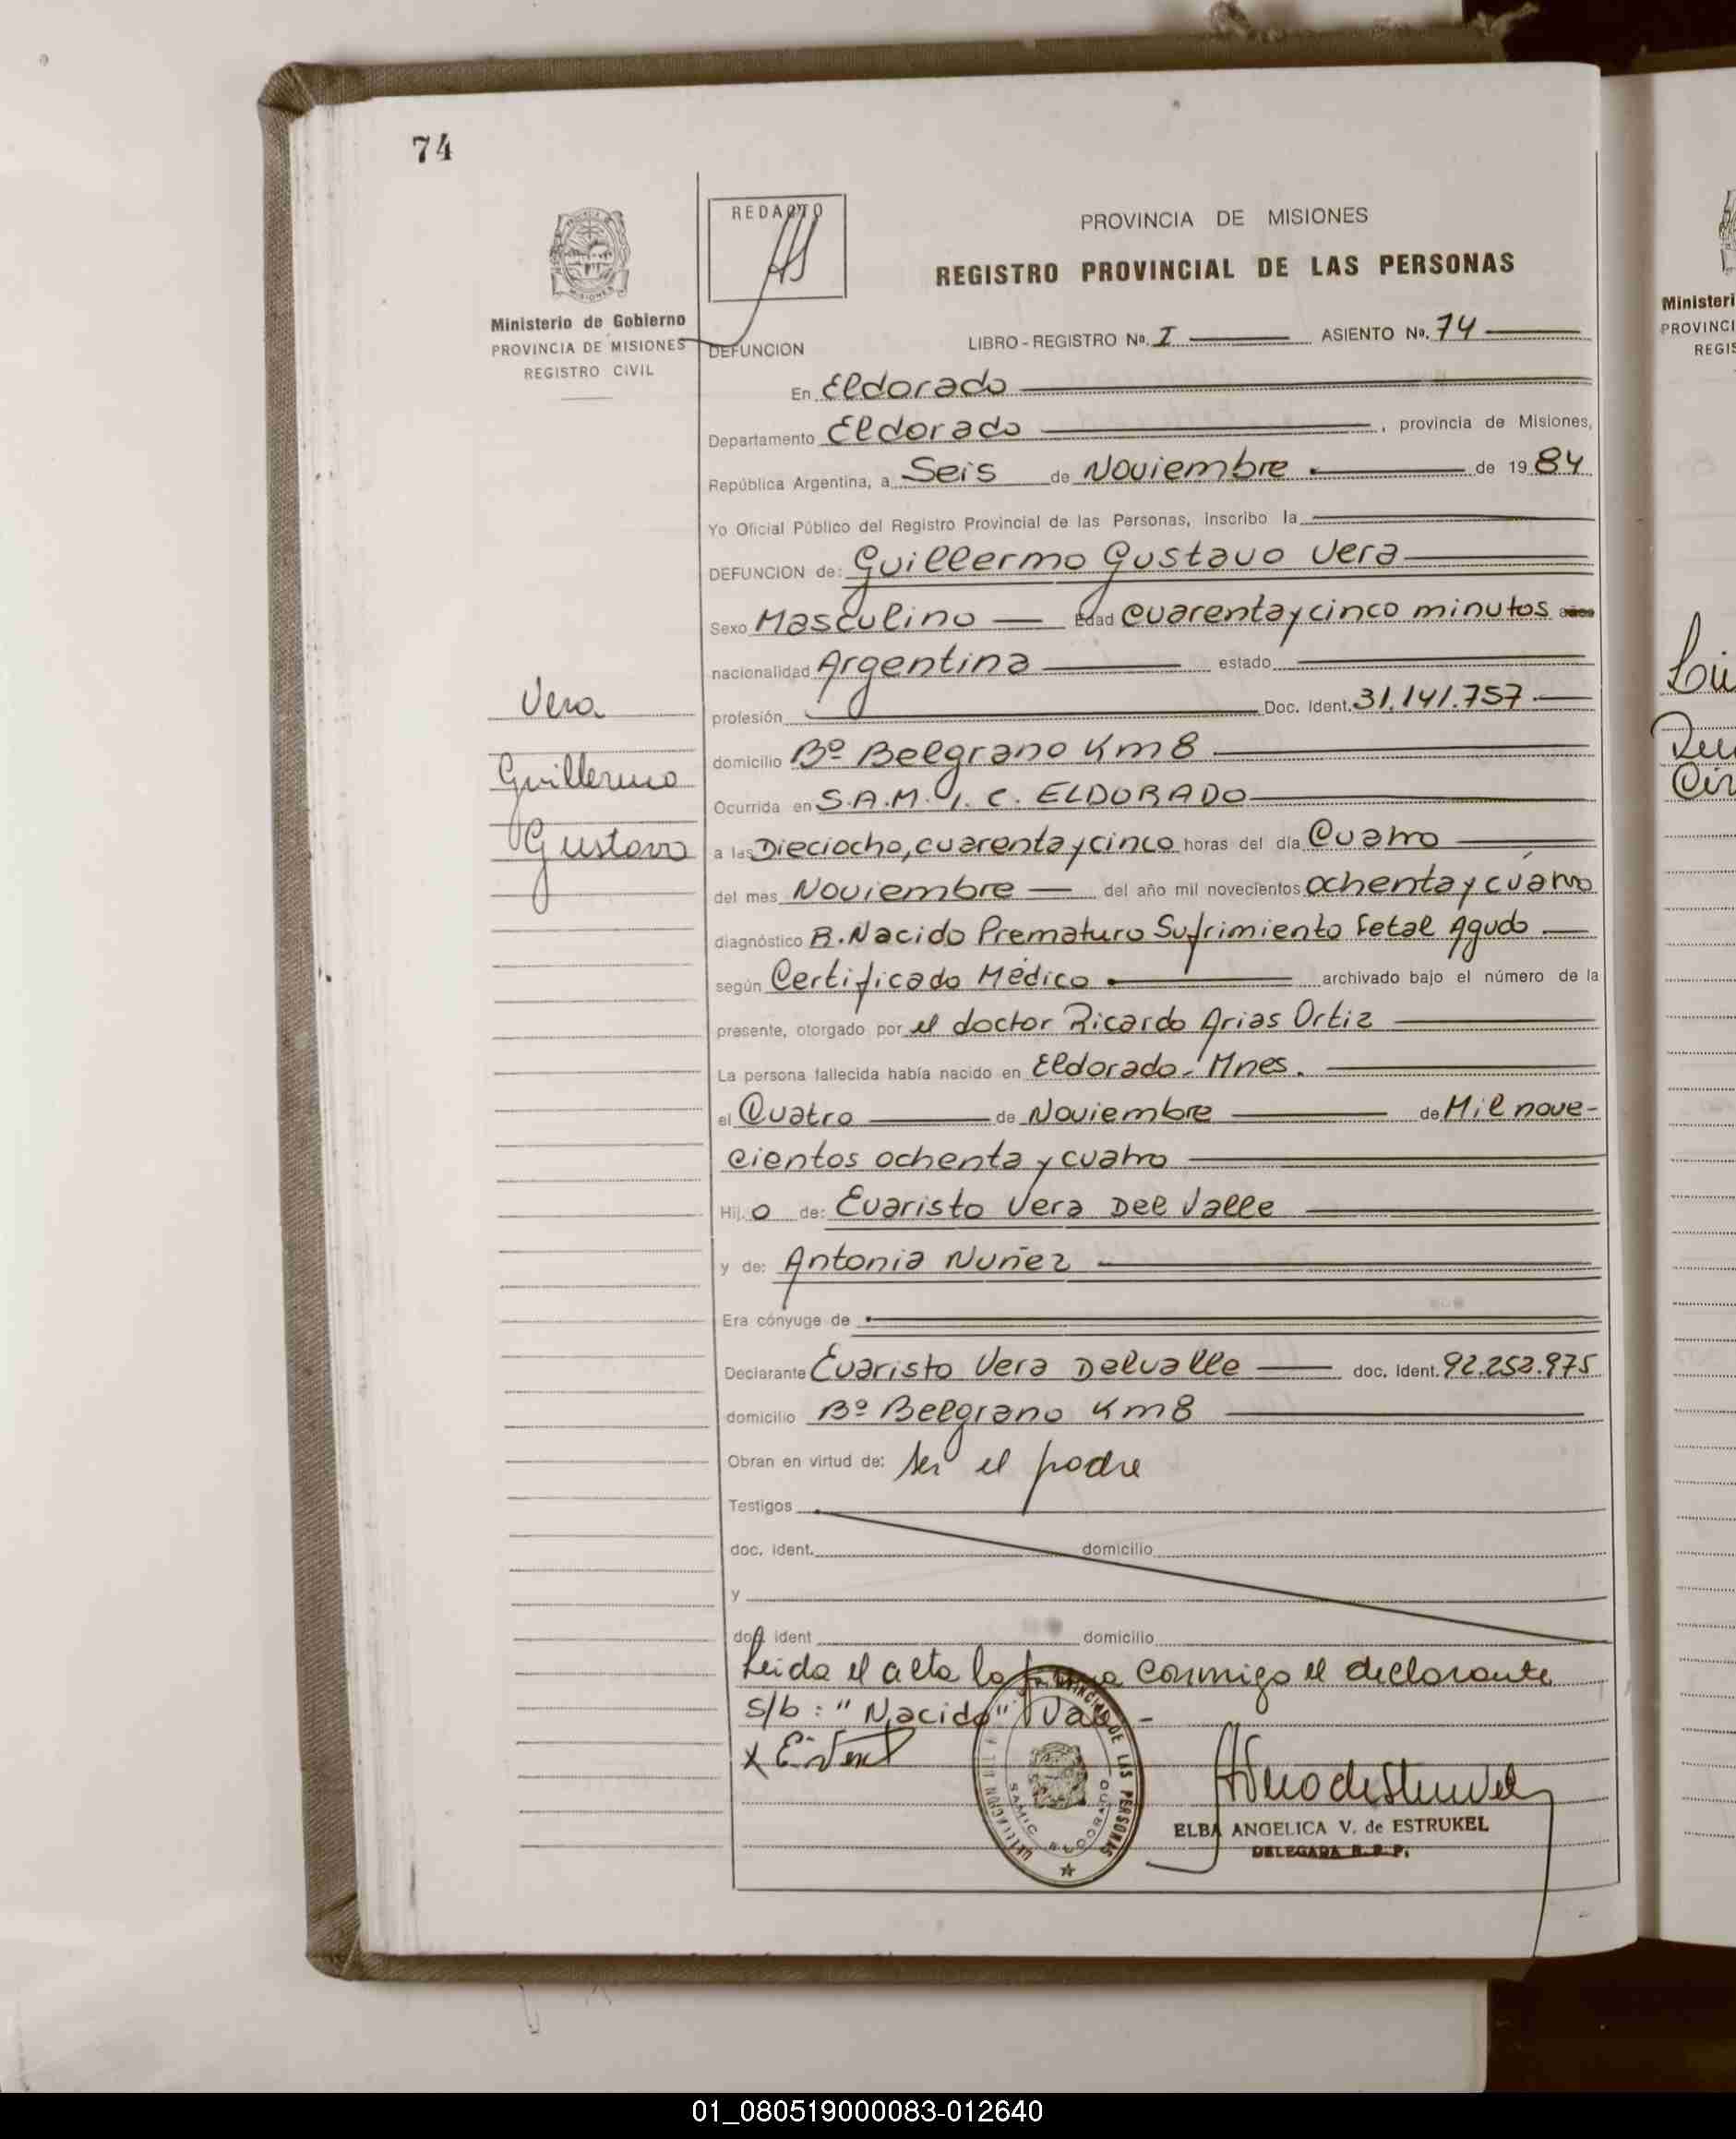 74
REDACTO
PROVINCIA DE MISIONES
REGISTRO PROVINCIAL DE LAS PERSONAS
Ministerio de Gobierno
PROVINCIA DE MISIONES
REGISTRO CIVIL
DEFUNCION
LIBRO - REGISTRO Nº. I ASIENTO Nº. 74
En Eldorado
Departamento Eldorado, provincia de Misiones,
República Argentina, a Seis de Noviembre de 1984
Yo Oficial Público del Registro Provincial de las Personas, inscribo la
DEFUNCION de: Guillermo Gustavo Vera
Sexo Masculino Edad cuarenta y cinco minutos
nacionalidad Argentina estado
profesión Doc. Ident. 31.141.757
domicilio Bº Belgrano Km 8
Ocurrida en S.A.M.I.C. ELDORADO
a las Dieciocho, cuarenta y cinco horas del día Cuatro
del mes Noviembre del año mil novecientos ochenta y cuatro
diagnóstico R. Nacido Prematuro Sufrimiento Fetal Agudo
según Certificado Médico archivado bajo el número de la
presente, otorgado por el doctor Ricardo Arias Ortiz
La persona fallecida había nacido en Eldorado - Mnes.
el Cuatro de Noviembre de Mil nove-
cientos ochenta y cuatro
Hij o de: Evaristo Vera Del Valle
y de: Antonia Nuñez
Era cónyuge de
Declarante Evaristo Vera Delvalle doc. Ident. 92.252.975
domicilio Bº Belgrano Km 8
Obran en virtud de: ser el padre
Testigos
doc. ident. domicilio
y
doc. ident domicilio
Leida el acta la firma conmigo el declarante
s/b: "Nacido" Vale -
ELBA ANGELICA V. de ESTRUKEL
DELEGADA R.P.P.
PROVINCIAL DE LAS PERSONAS
SAMIC ELDORADO
Vera
Guillermo
Gustavo
Ministeri
PROVINCI
REGIS
01_080519000083-012640